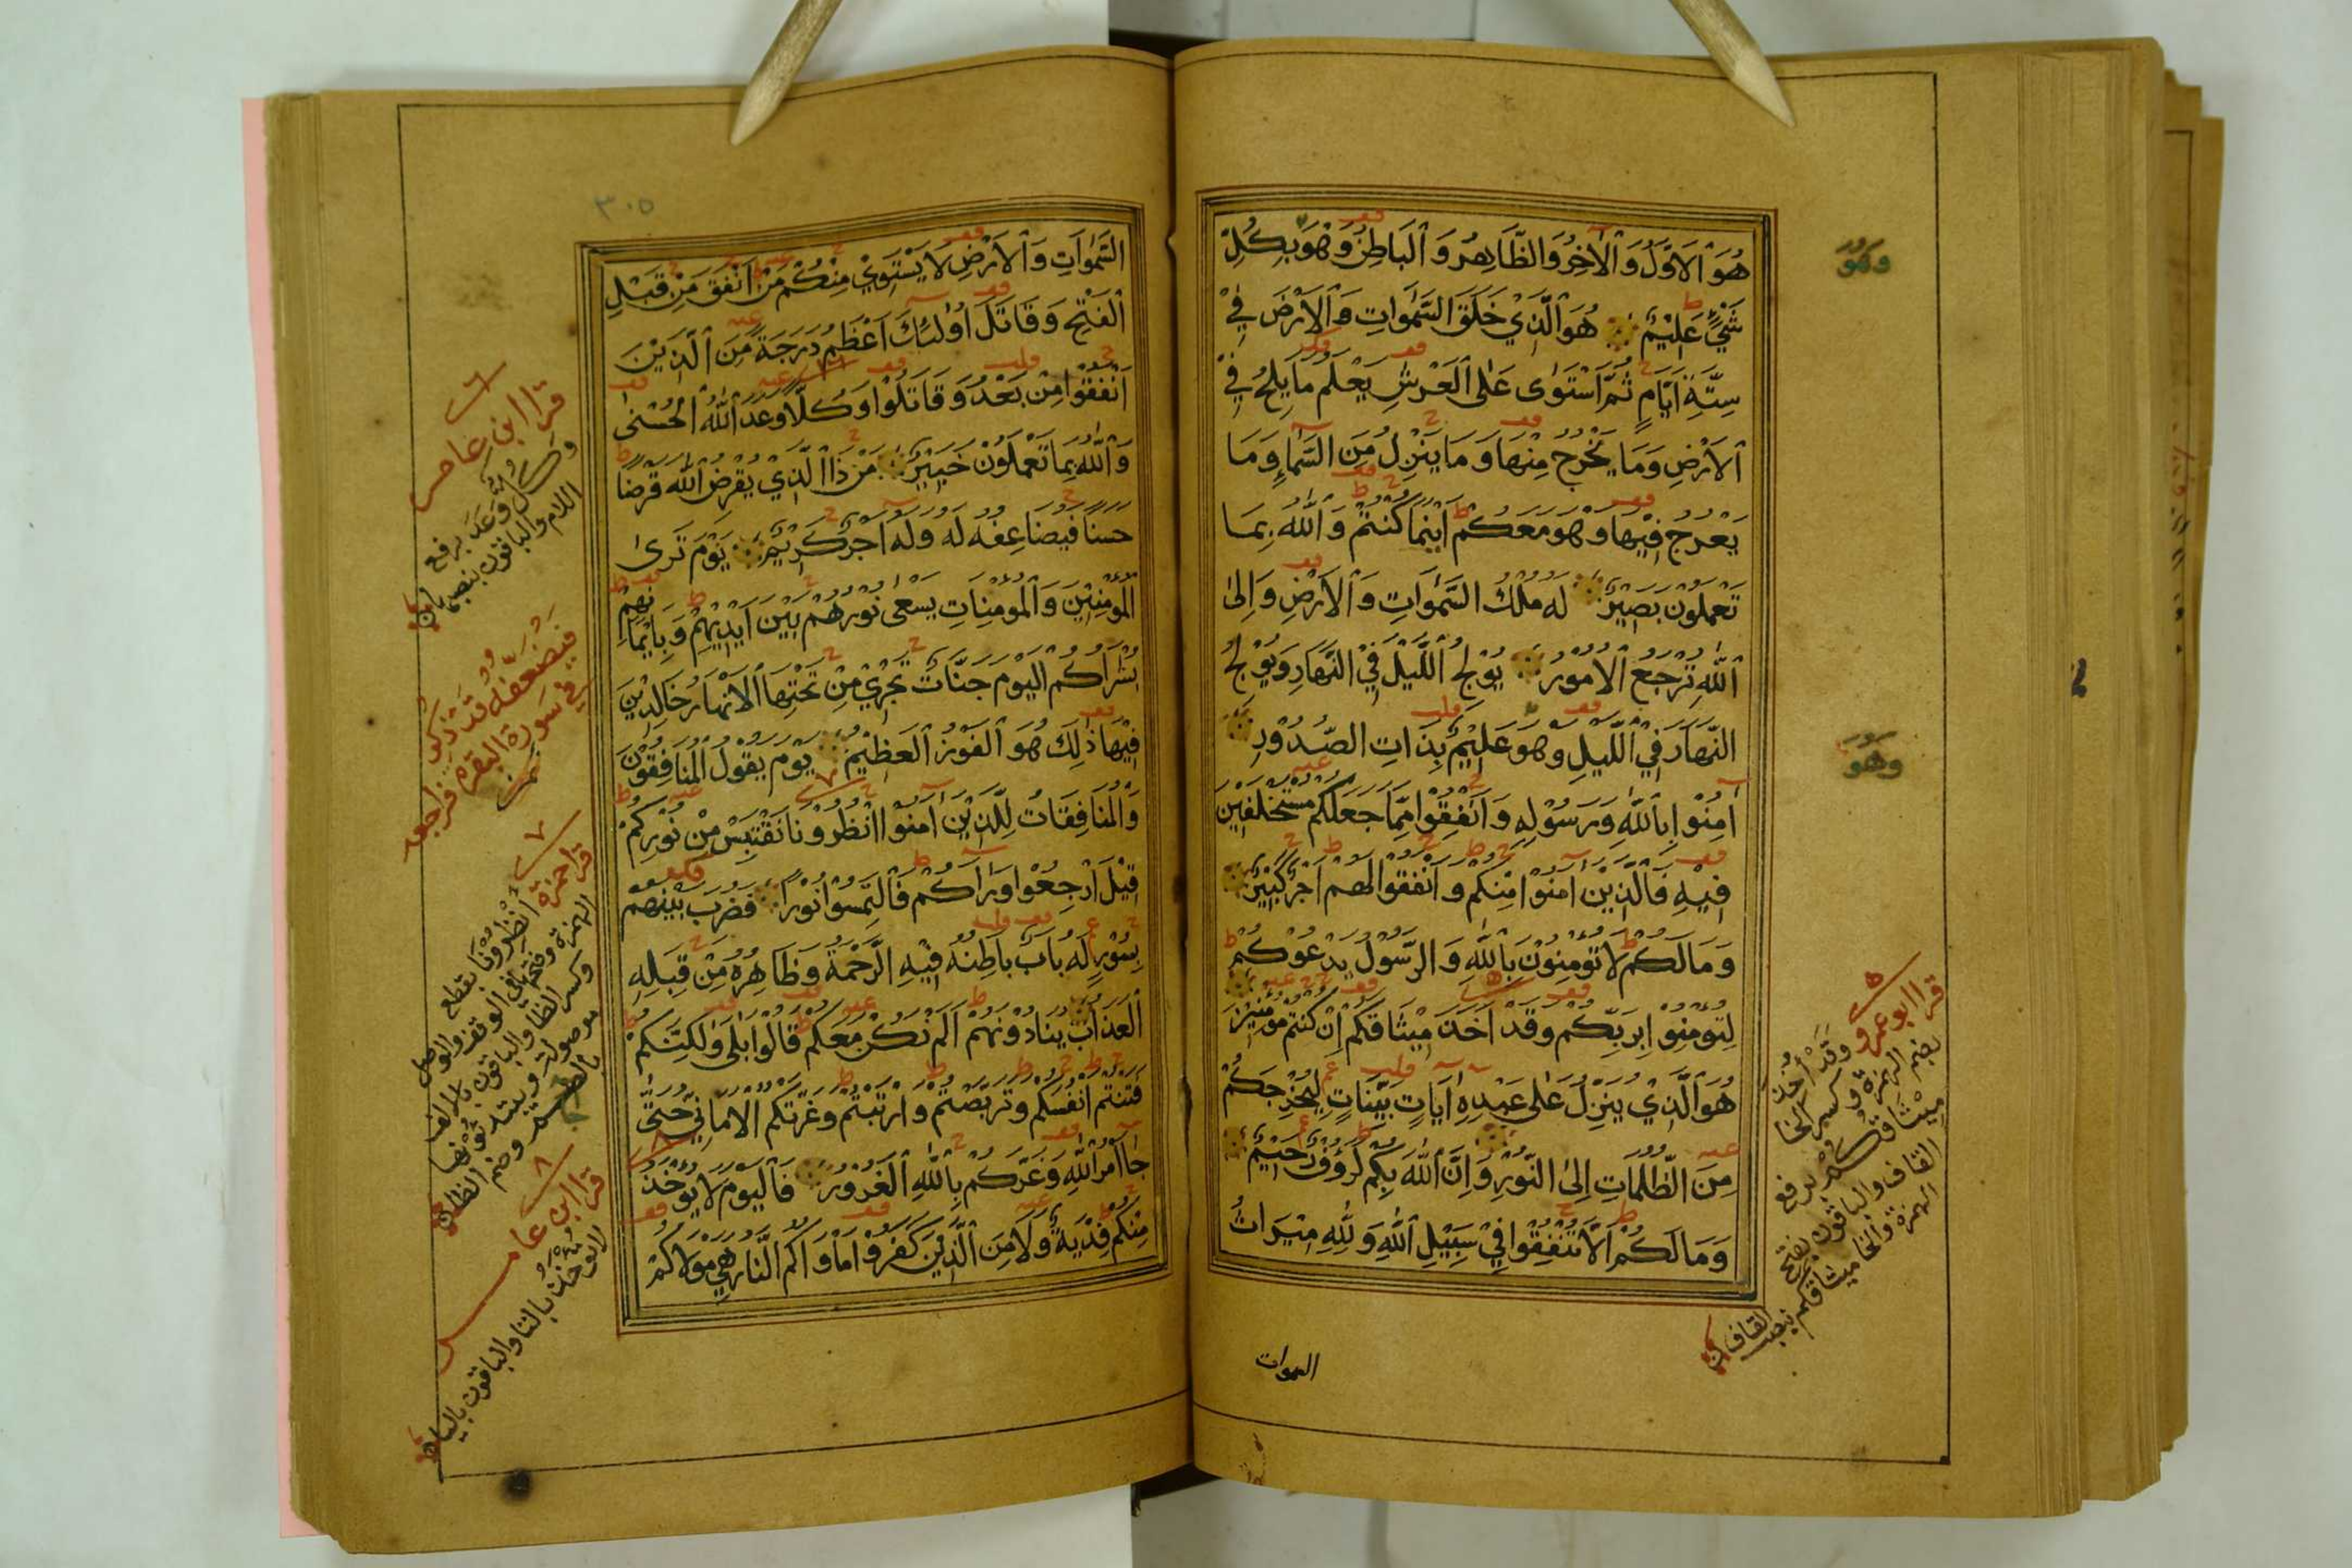 هُوَ ٱلْاَوَّلُ وَٱلْاٰخِرُ وَالظَّاهِرُ وَٱلْبَاطِنُ وَهُوَ بِكُلِّ
شَيْءٍ عَلِيْمٌ هُوَ ٱلَّذِيْ خَلَقَ السَّمٰوَاتِ وَٱلْاَرْضَ فِيْ
سِتَّةِ اَيَّامٍ ثُمَّ ٱسْتَوٰى عَلَى ٱلْعَرْشِ يَعْلَمُ مَا يَلِجُ فِيْ
ٱلْاَرْضِ وَمَا يَخْرُجُ مِنْهَا وَمَا يَنْزِلُ مِنَ السَّمَآءِ وَمَا
يَعْرُجُ فِيْهَا وَهُوَ مَعَكُمْ اَيْنَمَا كُنْتُمْ وَٱللّٰهُ بِمَا
تَعْمَلُوْنَ بَصِيْرٌ لَهُ مُلْكُ السَّمٰوَاتِ وَٱلْاَرْضِ وَاِلَى
ٱللّٰهِ تُرْجَعُ الْاُمُوْرُ يُوْلِجُ ٱللَّيْلَ فِيْ النَّهَارِ وَيُوْلِجُ
النَّهَارَ فِيْ ٱللَّيْلِ وَهُوَ عَلِيْمٌ بِذَاتِ الصُّدُوْرِ
اٰمِنُوْا بِٱللّٰهِ وَرَسُوْلِهِ وَاَنْفِقُوْا مِمَّا جَعَلَكُمْ مُسْتَخْلَفِيْنَ
فِيْهِ فَٱلَّذِيْنَ اٰمَنُوْا مِنْكُمْ وَاَنْفَقُوْا لَهُمْ اَجْرٌ كَبِيْرٌ
وَمَا لَكُمْ لَا تُؤْمِنُوْنَ بِٱللّٰهِ وَالرَّسُوْلُ يَدْعُوْكُمْ
لِتُؤْمِنُوْا بِرَبِّكُمْ وَقَدْ اَخَذَ مِيْثَاقَكُمْ اِنْ كُنْتُمْ مُؤْمِنِيْنَ
هُوَ ٱلَّذِيْ يُنَزِّلُ عَلَى عَبْدِهِ اٰيَاتٍ بَيِّنَاتٍ لِيُخْرِجَكُمْ
مِنَ الظُّلُمَاتِ اِلَى النُّوْرِ وَاِنَّ ٱللّٰهَ بِكُمْ لَرَؤُفٌ رَحِيْمٌ
وَمَا لَكُمْ اَلَّا تُنْفِقُوْا فِيْ سَبِيْلِ ٱللّٰهِ وَلِلّٰهِ مِيْرَاثُ
السموات
وَهُوَ
وَهُوَ
٥
قرا ابو عمرو وَقَدْ أُخِذَ
بضم الهمزة وكسر الخا
مِيْثَاقُكُمْ برفع
القاف والباقون بفتح
الهمزة والخا ميثاقكم بنصب
القاف
٣٠٥
السَّمٰوَاتِ وَٱلْاَرْضِ لَا يَسْتَوِيْ مِنْكُمْ مَنْ اَنْفَقَ مِنْ قَبْلِ
ٱلْفَتْحِ وَقَاتَلَ اُوْلٰئِكَ اَعْظَمُ دَرَجَةً مِنَ ٱلَّذِيْنَ
اَنْفَقُوْا مِنْ بَعْدُ وَقَاتَلُوْا وَكُلًّا وَعَدَ ٱللّٰهُ الْحُسْنٰى
وَٱللّٰهُ بِمَا تَعْمَلُوْنَ خَبِيْرٌ مَنْ ذَا الَّذِيْ يُقْرِضُ ٱللّٰهَ قَرْضًا
حَسَنًا فَيُضَاعِفَهُ لَهُ وَلَهُ اَجْرٌ كَرِيْمٌ يَوْمَ تَرَى
الْمُؤْمِنِيْنَ وَٱلْمُؤْمِنَاتِ يَسْعٰى نُوْرُهُمْ بَيْنَ اَيْدِيْهِمْ وَبِاَيْمَانِهِمْ
بُشْرَاكُمُ الْيَوْمَ جَنَّاتٌ تَجْرِيْ مِنْ تَحْتِهَا الْاَنْهَارُ خَالِدِيْنَ
فِيْهَا ذٰلِكَ هُوَ ٱلْفَوْزُ ٱلْعَظِيْمُ يَوْمَ يَقُوْلُ الْمُنَافِقُوْنَ
وَالْمُنَافِقَاتُ لِلَّذِيْنَ اٰمَنُوْا انْظُرُوْنَا نَقْتَبِسْ مِنْ نُوْرِكُمْ
قِيْلَ ارْجِعُوْا وَرَاَكُمْ فَالْتَمِسُوْا نُوْرًا فَضُرِبَ بَيْنَهُمْ
بِسُوْرٍ لَهُ بَابٌ بَاطِنُهُ فِيْهِ الرَّحْمَةُ وَظَاهِرُهُ مِنْ قِبَلِهِ
الْعَذَابُ يُنَادُوْنَهُمْ اَلَمْ نَكُنْ مَعَكُمْ قَالُوْا بَلٰى وَلٰكِنَّكُمْ
فَتَنْتُمْ اَنْفُسَكُمْ وَتَرَبَّصْتُمْ وَارْتَبْتُمْ وَغَرَّتْكُمُ الْاَمَانِيُّ حَتّٰى
جَا اَمْرُ ٱللّٰهِ وَغَرَّكُمْ بِٱللّٰهِ ٱلْغَرُوْرُ فَالْيَوْمَ لَا يُؤْخَذُ
مِنْكُمْ فِدْيَةٌ وَلَا مِنَ الَّذِيْنَ كَفَرُوْا مَأْوَاكُمُ النَّارُ هِيَ مَوْلَاكُمْ
٦
قرا ابن عامر
وَكُلٌّ وَعَدَ برفع
اللام والباقون بنصبها
فيضعّفه قد ذكر
في سورة البقرة فراجعه
ثمه
٧
قرا حمزة أَنْظِرُوْنَا بقطع
الهمزة وفتحها في الوقف والوصل
وكسر الظا والباقون بالف
موصولة ويبتدئونها
بالضم وضم الظا
٨
قرا ابن عامر
لا تُؤْخَذُ بالتا والباقون باليا